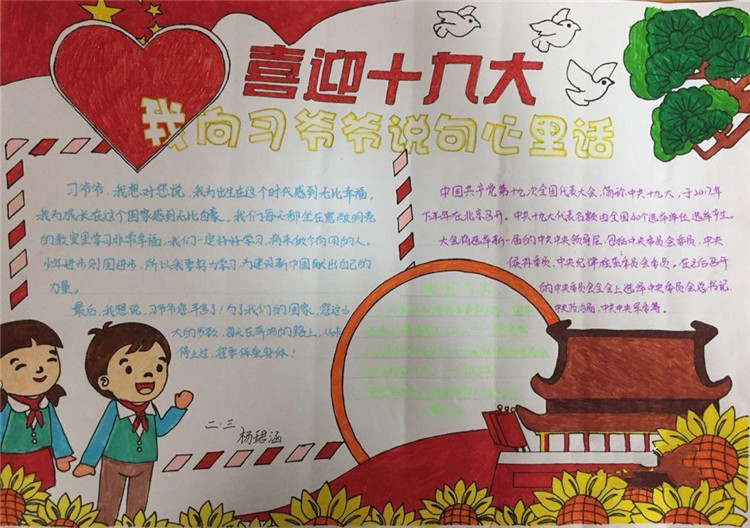 喜迎十九大
我向习爷爷说句心里话
习爷爷,我想对您说,我为出生在这个时代感到无比幸福,
我为成长在这个国家感到无比自豪。我们每天都坐在宽敞明亮
的教室里学习非常幸福,我们一定好好学习,将来做个有用的人。
少年进步则国进步,所以我要努力学习,为建设新中国献出自己的
力量。
最后,我想说,习爷爷您辛苦了!为了我们的国家,您这么
大的岁数,每天在奔波的路上,从未
停止过,您要保重身体!
二.三
杨珺涵
中国共产党第十九次全国代表大会,简称中共十九大,于2017年
下半年在北京召开。中共十九大代表名额由全国40个选举单位选举产生。
大会将选举新一届的中共中央领导层,包括中央委员会委员、中央
候补委员、中央纪律检查委员会委员。在之后召开
的中央委员会全会上选举中央委员会总书记、
中央政治局、中共中央军委等。